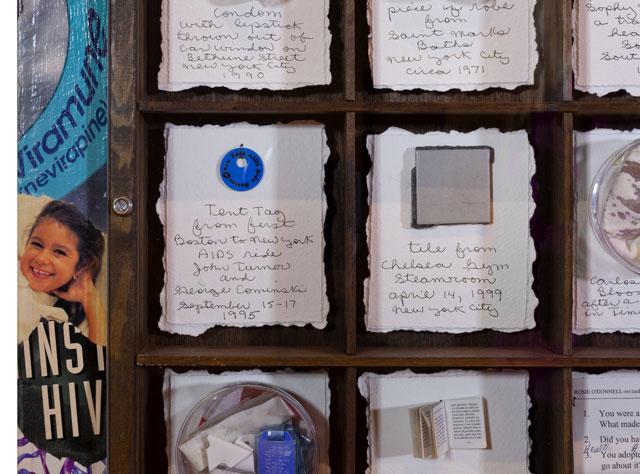 Condom
with lipstick
thrown out of
car window on
Bethune Street
New York City
1990
piece of robe
from
Saint Marks
Baths
New York City
circa 1971
Sophi
a tra
hea
S
Sout
Viramune
(nevirapine)
INST
HIV
Tent Tag
from first
Boston to New York
AIDS ride
John Turner
and
George Cominski
September 15-17
1995
tile from
Chelsea Gym
Steamroom
april 14, 1999
New York City
Carlos
Bloo
after a
in Tim
ROSIE O'DONNELL
1. You were
What made
2. Did you ha
3. You adopt
go about it